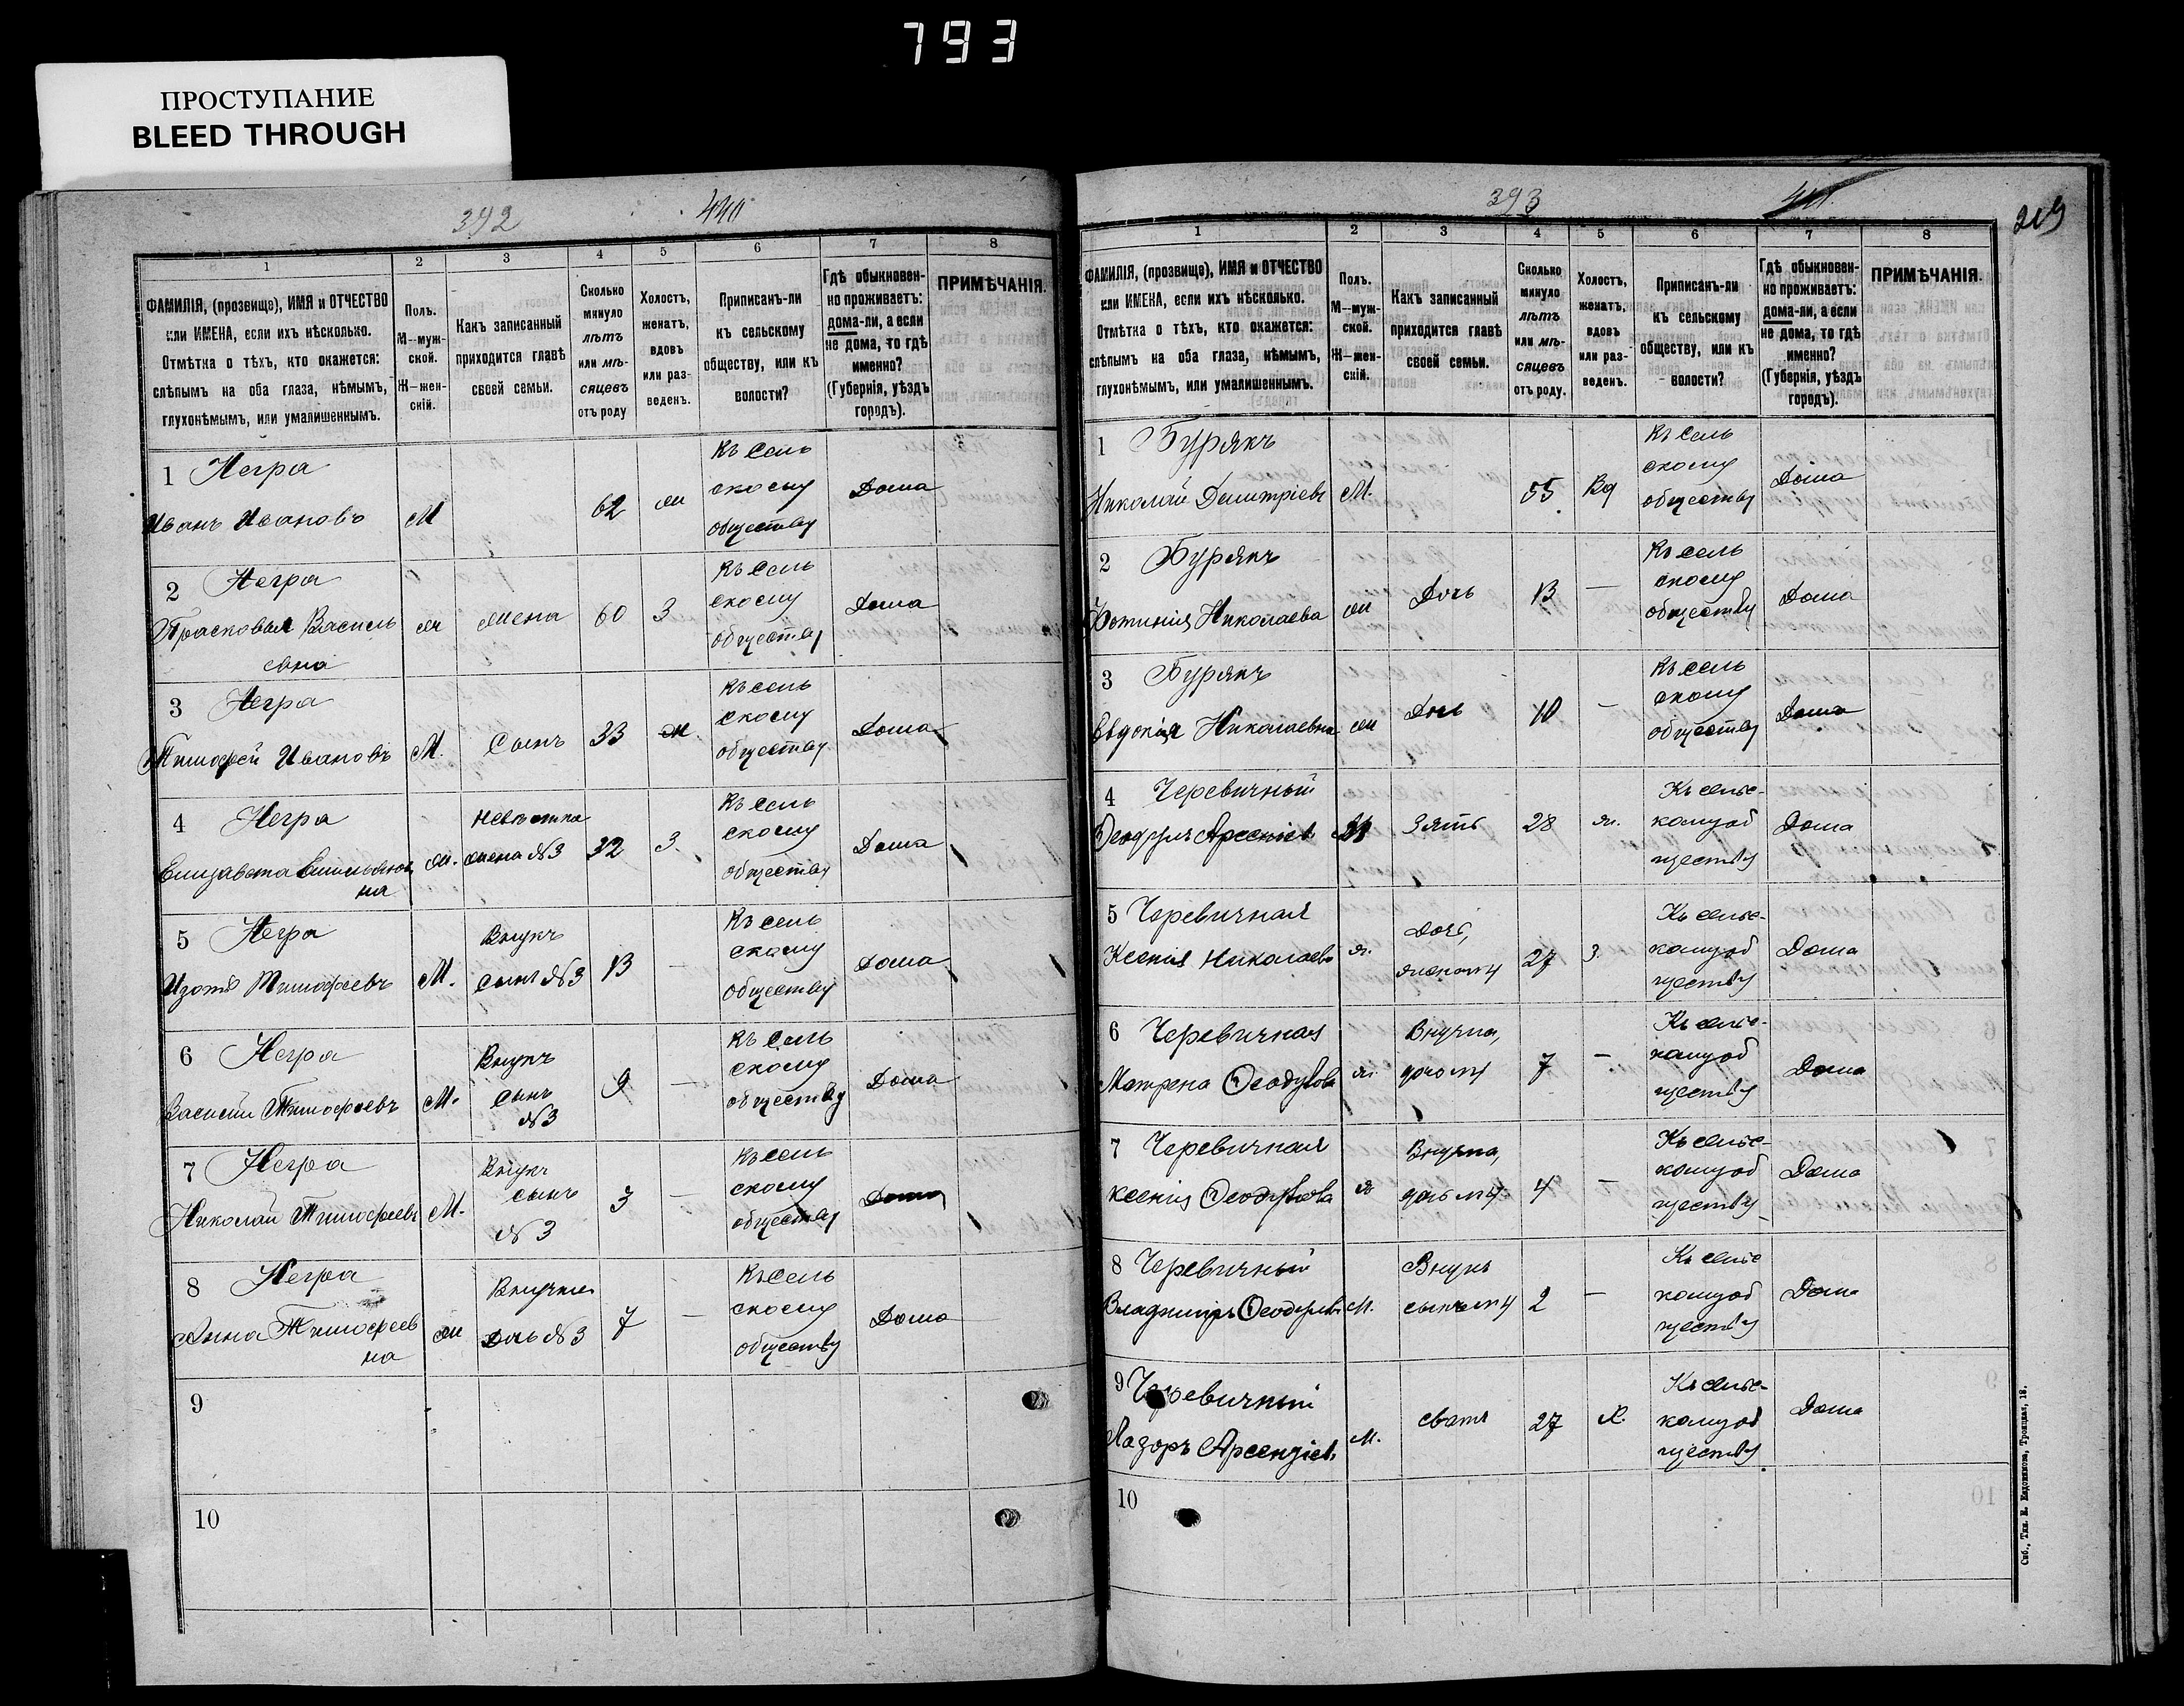 793
ПРОСТУПАНИЕ
BLEED THROUGH
392
440
1 2 3 4 5 6 7 8
ФАМИЛІЯ, (прозвище), ИМЯ и ОТЧЕСТВО или ИМЕНА, если ихъ нѣсколько. Отмѣтка о тѣхъ, кто окажется: слѣпымъ на оба глаза, нѣмымъ, глухонѣмымъ, или умалишеннымъ.
Полъ. М—мужской. Ж—женскій.
Какъ записанный приходится главѣ своей семьи.
Сколько минуло лѣтъ или мѣсяцевъ отъ роду
Холостъ, женатъ, вдовъ или разведенъ.
Приписанъ-ли къ сельскому обществу, или къ волости?
Гдѣ обыкновенно проживаетъ: дома-ли, а если не дома, то гдѣ именно? (Губернія, уѣздъ городъ).
ПРИМѢЧАНІЯ.
1 Негра
Иванъ Ивановъ М 62 ж Къ сельскому обществу Дома
2 Негра
Прасковья Васильевна ж жена 60 З Къ сельскому обществу Дома
3 Негра
Тимофей Ивановъ М. Сынъ 33 ж Къ сельскому обществу Дома
4 Негра
Елизавета ж. Невѣстка жена №3 32 З. Къ сельскому обществу Дома
5 Негра
Изотъ Тимофеевъ М. Внукъ сынъ №3 13 — Къ сельскому обществу Дома
6 Негра
Василий Тимофеевъ М. Внукъ сынъ №3 9 — Къ сельскому обществу Дома
7 Негра
Николай Тимофеевъ М. Внукъ сынъ №3 3 — Къ сельскому обществу Дома
8 Негра
Анна Тимофеевна ж Внучка Дочь №3 7 — Къ сельскому обществу Дома
9
10
393
209
1 2 3 4 5 6 7 8
ФАМИЛІЯ, (прозвище), ИМЯ и ОТЧЕСТВО или ИМЕНА, если ихъ нѣсколько. Отмѣтка о тѣхъ, кто окажется: слѣпымъ на оба глаза, нѣмымъ, глухонѣмымъ, или умалишеннымъ.
Полъ. М—мужской. Ж—женскій.
Какъ записанный приходится главѣ своей семьи.
Сколько минуло лѣтъ или мѣсяцевъ отъ роду.
Холостъ, женатъ, вдовъ или разведенъ.
Приписанъ-ли къ сельскому обществу, или къ волости?
Гдѣ обыкновенно проживаетъ: дома-ли, а если не дома, то гдѣ именно? (Губернія, уѣздъ городъ).
ПРИМѢЧАНІЯ.
1 Бурякъ
Николай Дмитріевъ М. 55 Вд Къ сельскому обществу Дома
2 Бурякъ
Николаева ж Дочь 13 — Къ сельскому обществу Дома
3 Бурякъ
Евдокія Николаевна ж Дочь 10 — Къ сельскому обществу Дома
4 Черевичный
Арсеніев М Зять 28 ж. Къ сельскому обществу Дома
5 Черевичная
Ксенія Николаева ж. Дочь, 27 З. Къ сельскому обществу Дома
6 Черевичная
Матрена Ѳеодулова ж. Внучка, дочь №4 7 — Къ сельскому обществу Дома
7 Черевичная
Ксенія Ѳеодулова ж Внучка, дочь №4 4 — Къ сельскому обществу Дома
8 Черевичный
Владимиръ М. Внукъ сынъ №4 2 — Къ сельскому обществу Дома
9 Черевичный
Лазоръ М. сватъ 27 Х. Къ сельскому обществу Дома
10
Спб., Тип. Е. Евдокимова, Троицкая, 18.